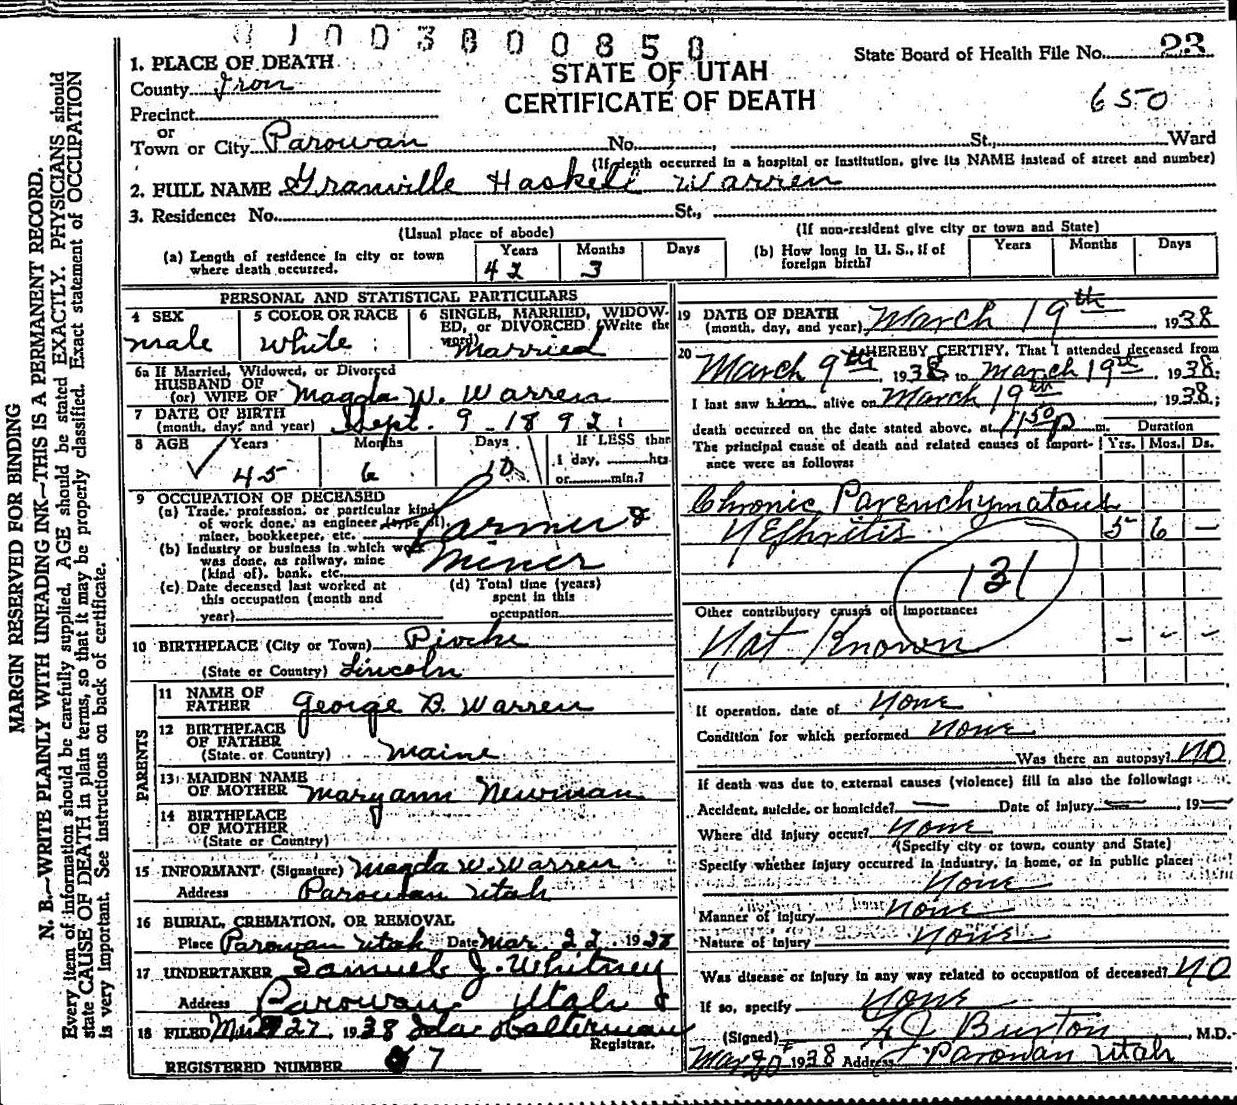 0 1 0 0 3 8 0 0 8 5 0
State Board of Health File No. 23
STATE OF UTAH
CERTIFICATE OF DEATH
650
1. PLACE OF DEATH
County Iron
Precinct
or
Town or City Parowan No. , St., Ward
(If death occurred in a hospital or institution, give its NAME instead of street and number)
2. FULL NAME Granville Haskell Warren
3. Residence: No. St.,
(Usual place of abode) (If non-resident give city or town and State)
(a) Length of residence in city or town where death occurred. Years 42 Months 3 Days
(b) How long in U. S., if of foreign birth? Years Months Days
PERSONAL AND STATISTICAL PARTICULARS
4 SEX male
5 COLOR OR RACE White
6 SINGLE, MARRIED, WIDOWED, or DIVORCED (Write the word) Married
6a If Married, Widowed, or Divorced
HUSBAND OF
(or) WIFE OF Magda W. Warren
7 DATE OF BIRTH
(month, day, and year) Sept. 9 - 1892
8 AGE Years 45 Months 6 Days 10 If LESS than
1 day, hrs
or min.?
9 OCCUPATION OF DECEASED
(a) Trade, profession, or particular kind
of work done, as engineer (type of),
miner, bookkeeper, etc. Farmer &
(b) Industry or business in which work
was done, as railway, mine
(kind of), bank, etc. Miner
(c) Date deceased last worked at
this occupation (month and
year)
(d) Total time (years)
spent in this
occupation
10 BIRTHPLACE (City or Town) Pioche
(State or Country) Lincoln
PARENTS
11 NAME OF
FATHER George D. Warren
12 BIRTHPLACE
OF FATHER
(State or Country) Maine
13 MAIDEN NAME
OF MOTHER Maryann Newman
14 BIRTHPLACE
OF MOTHER
(State or Country)
15 INFORMANT (Signature) Magda W. Warren
Address Parowan Utah
16 BURIAL, CREMATION, OR REMOVAL
Place Parowan Utah Date Mar. 22 1938
17 UNDERTAKER Samuel J. Whitney
Address Parowan Utah
18 FILED Mar 27, 1938 Ida Halterman
Registrar.
REGISTERED NUMBER 7
19 DATE OF DEATH
(month, day, and year) March 19th 1938
20 I HEREBY CERTIFY, That I attended deceased from
March 9th, 1938, to March 19th, 1938;
I last saw him alive on March 19th, 1938;
death occurred on the date stated above, at 1150 p m.
The principal cause of death and related causes of importance were as follows: Duration Yrs. Mos. Ds.
Chronic Parenchymatous
Nephritis 5 6 —
131
Other contributory causes of importance:
Not Known — — —
If operation, date of None
Condition for which performed None
Was there an autopsy? NO
If death was due to external causes (violence) fill in also the following:
Accident, suicide, or homicide? — Date of Injury — , 19 —
Where did injury occur? None
(Specify city or town, county and State)
Specify whether injury occurred in industry, in home, or in public place:
None
Manner of injury None
Nature of injury None
Was disease or injury in any way related to occupation of deceased? NO
If so, specify None
(Signed) Burton, M.D.
Mar 20 1938 Address Parowan Utah
MARGIN RESERVED FOR BINDING
N. B.—WRITE PLAINLY WITH UNFADING INK—THIS IS A PERMANENT RECORD.
Every item of information should be carefully supplied. AGE should be stated EXACTLY. PHYSICIANS should
state CAUSE OF DEATH in plain terms, so that it may be properly classified. Exact statement of OCCUPATION
is very important. See instructions on back of certificate.